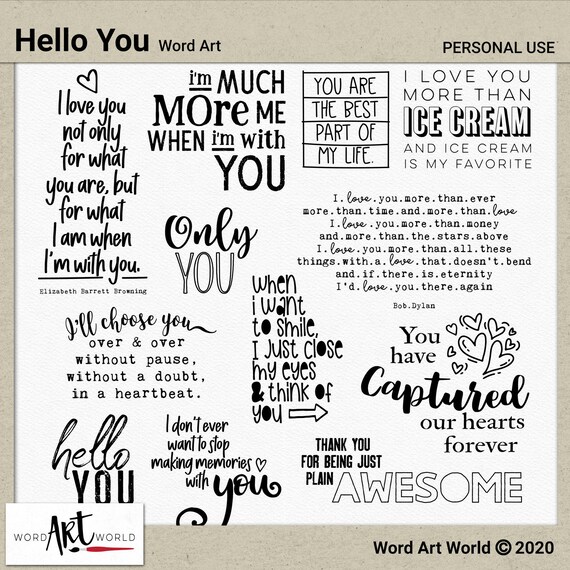 Hello You Word Art
PERSONAL USE
I love you
not only
for what
you are, but
for what
I am when
I'm with you.
Elizabeth Barrett Browning
i'm MUCH
MORE ME
WHEN i'm with
YOU
YOU ARE
THE BEST
PART OF
MY LIFE.
I LOVE YOU
MORE THAN
ICE CREAM
AND ICE CREAM
IS MY FAVORITE
Only
YOU
I.love.you.more.than.ever
more.than.time.and.more.than.love
I.love.you.more.than.money
and.more.than.the.stars.above
I.love.you.more.than.all.these
things.with.a.love.that.doesn't.bend
and.if.there.is.eternity
I'd.love.you.there.again
Bob.Dylan
I'll choose you
over & over
without pause,
without a doubt,
in a heartbeat.
when
i want
to smile,
I just close
my eyes
& think of
you
You
have
Captured
our hearts
forever
hello
YOU
I don't ever
want to stop
making memories
with you
THANK YOU
FOR BEING JUST
PLAIN AWESOME
WORD ART WORLD
Word Art World © 2020